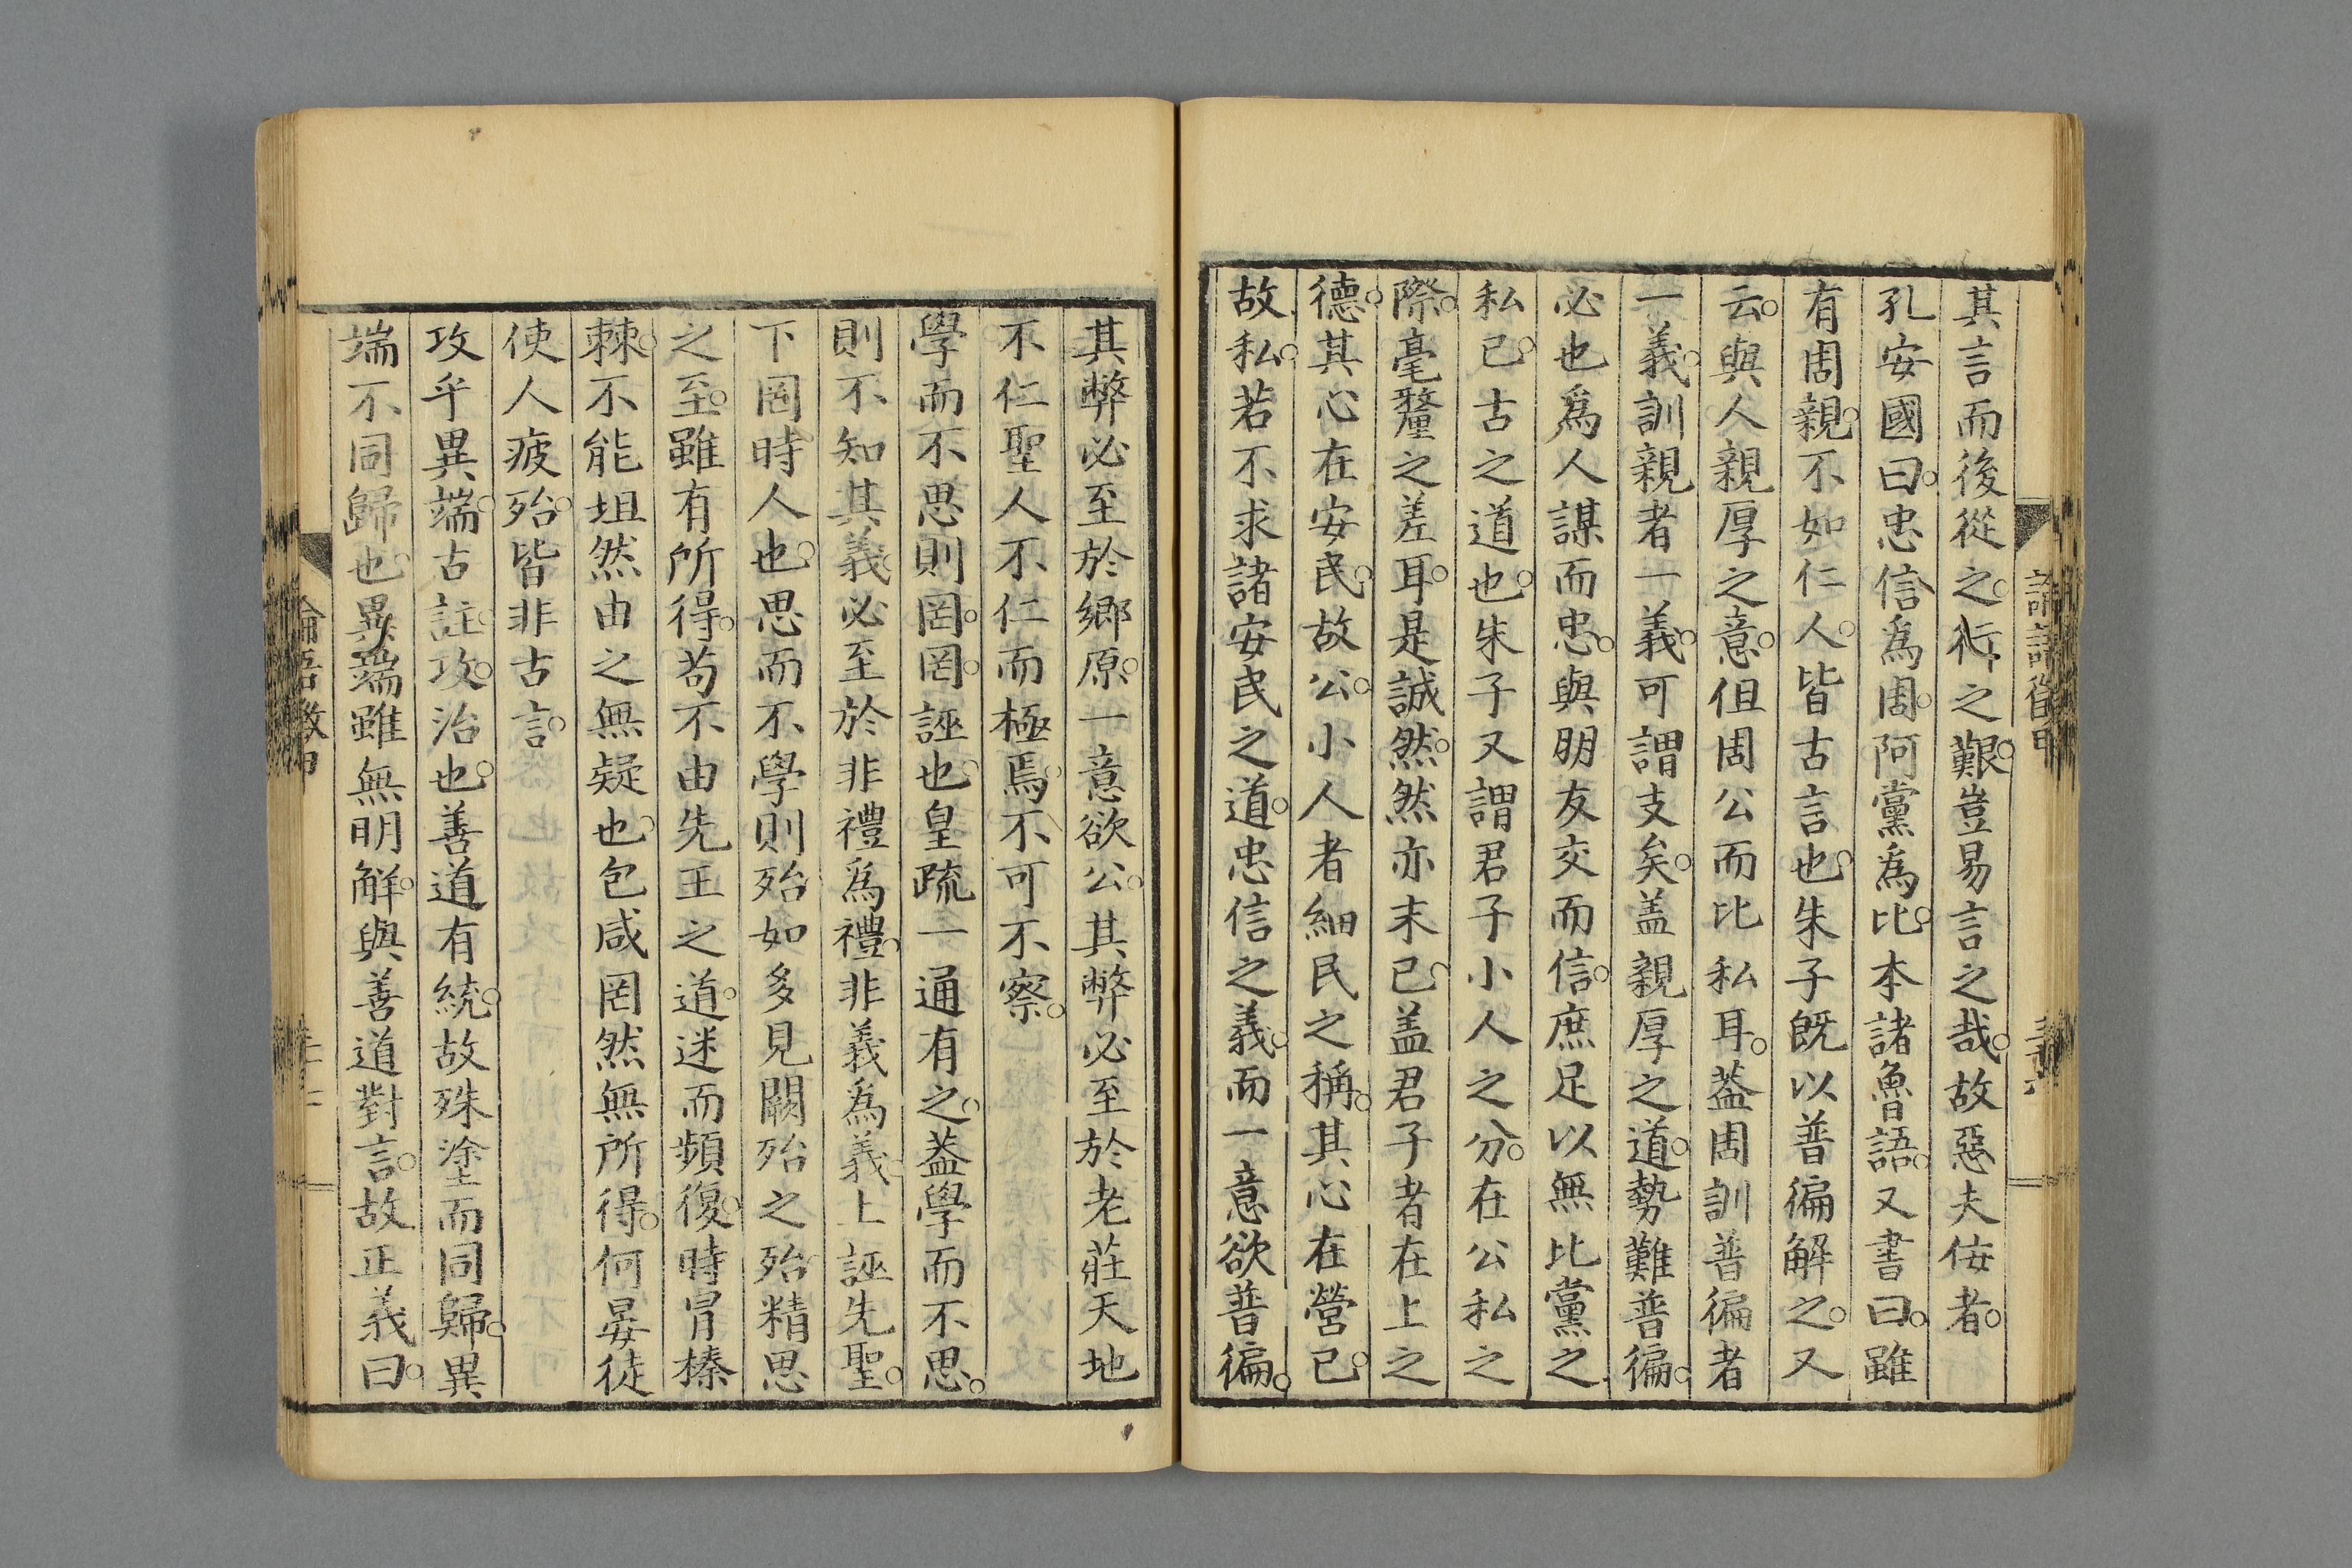 其言而後從之。行之艱。豈易言之哉。故惡夫佞者。
孔安國曰。忠信爲周。阿黨爲比。本諸魯語。又書曰。雖
有周親。不如仁人。皆古言也。朱子既以普徧解之。又
云。與人親厚之意。但周公而比私耳。蓋周訓普徧者
一義。訓親者一義。可謂支矣。盖親厚之道。勢難普徧。
必也爲人謀而忠。與朋友交而信。庶足以無比黨之
私已。古之道也。朱子又謂君子小人之分。在公私之
際。毫釐之差耳。是誠然。然亦末已。盖君子者在上之
德。其心在安民。故公。小人者細民之稱。其心在營己。
故私。若不求諸安民之道。忠信之義。而一意欲普徧。
其弊必至於鄉原。一意欲公。其弊必至於老莊天地
不仁聖人不仁而極焉。不可不察。
學而不思則罔。罔。誣也。皇疏一通有之。蓋學而不思。
則不知其義。必至於非禮爲禮。非義爲義。上誣先聖。
下罔時人也。思而不學則殆。如多見闕殆之殆。精思
之至。雖有所得。苟不由先王之道。迷而頻復。時冐榛
棘。不能坦然由之無疑也。包咸罔然無所得。何晏徒
使人疲殆。皆非古言。
攻乎異端。古註。攻。治也。善道有統。故殊塗而同歸。異
端不同歸也。異端雖無明解。與善道對言。故正義曰。